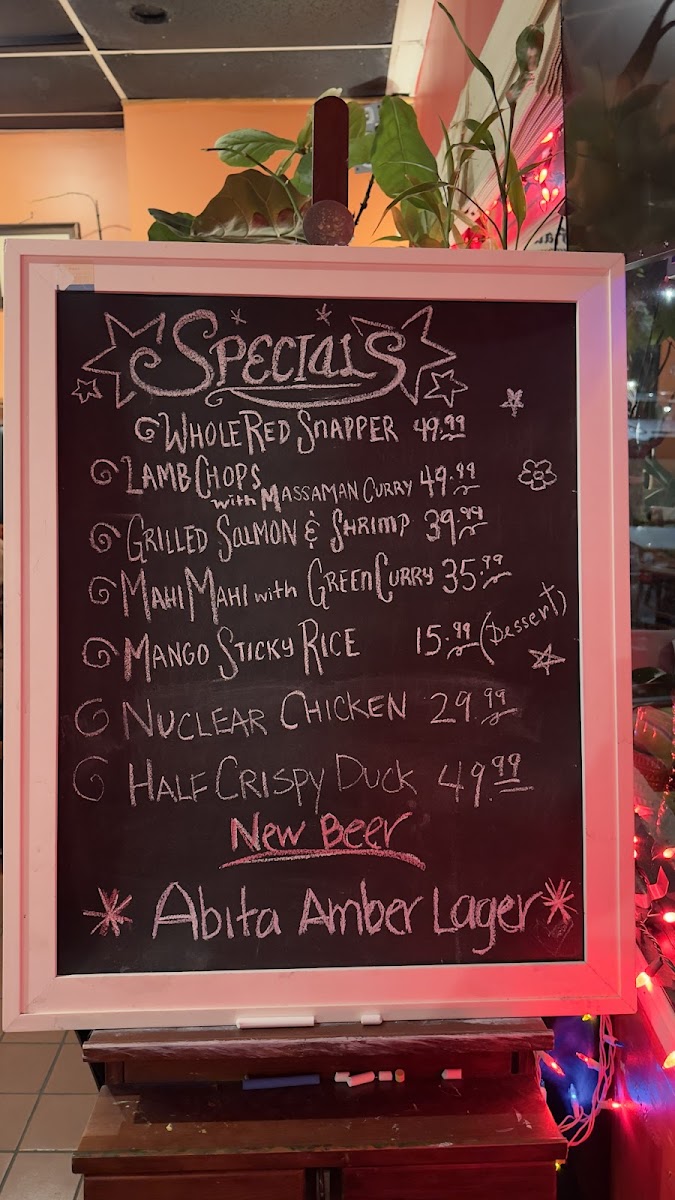 SPECIALS
WHOLE RED SNAPPER 49.99
LAMB CHOPS
with MASSAMAN CURRY 49.99
GRILLED SALMON & SHRIMP 39.99
MAHI MAHI with GREEN CURRY 35.99
MANGO STICKY RICE 15.99 (Dessert)
NUCLEAR CHICKEN 29.99
HALF CRISPY DUCK 49.99
New Beer
Abita Amber Lager